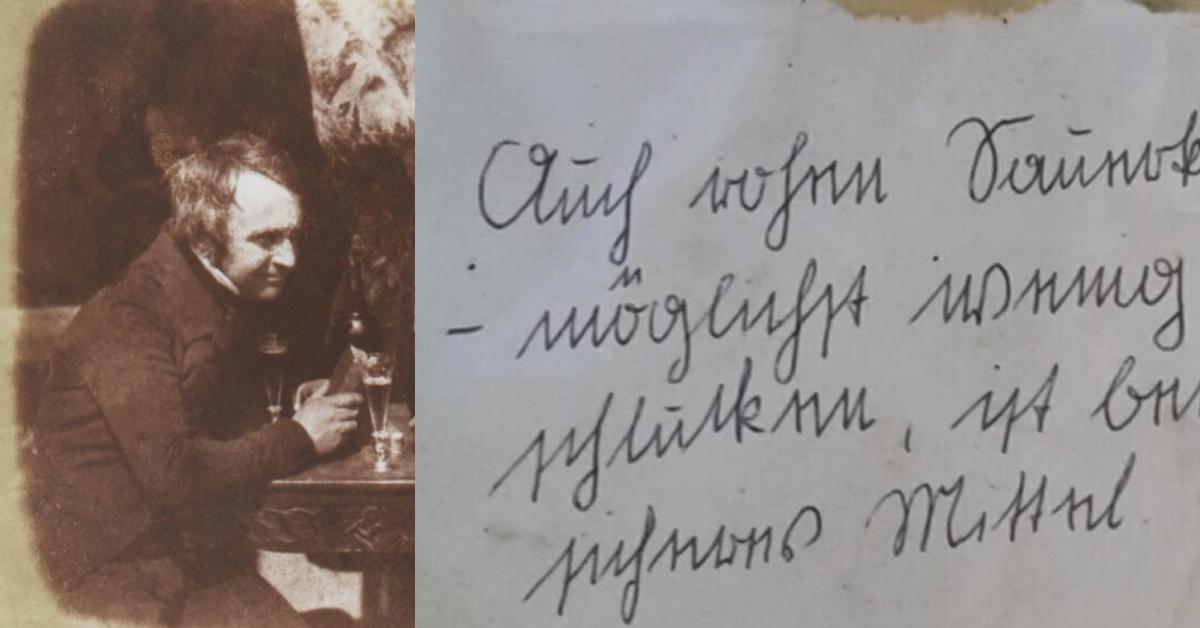 Auch rohen Sauerk
- möglichst wenig
schlucken, ist be
sicheres Mittel